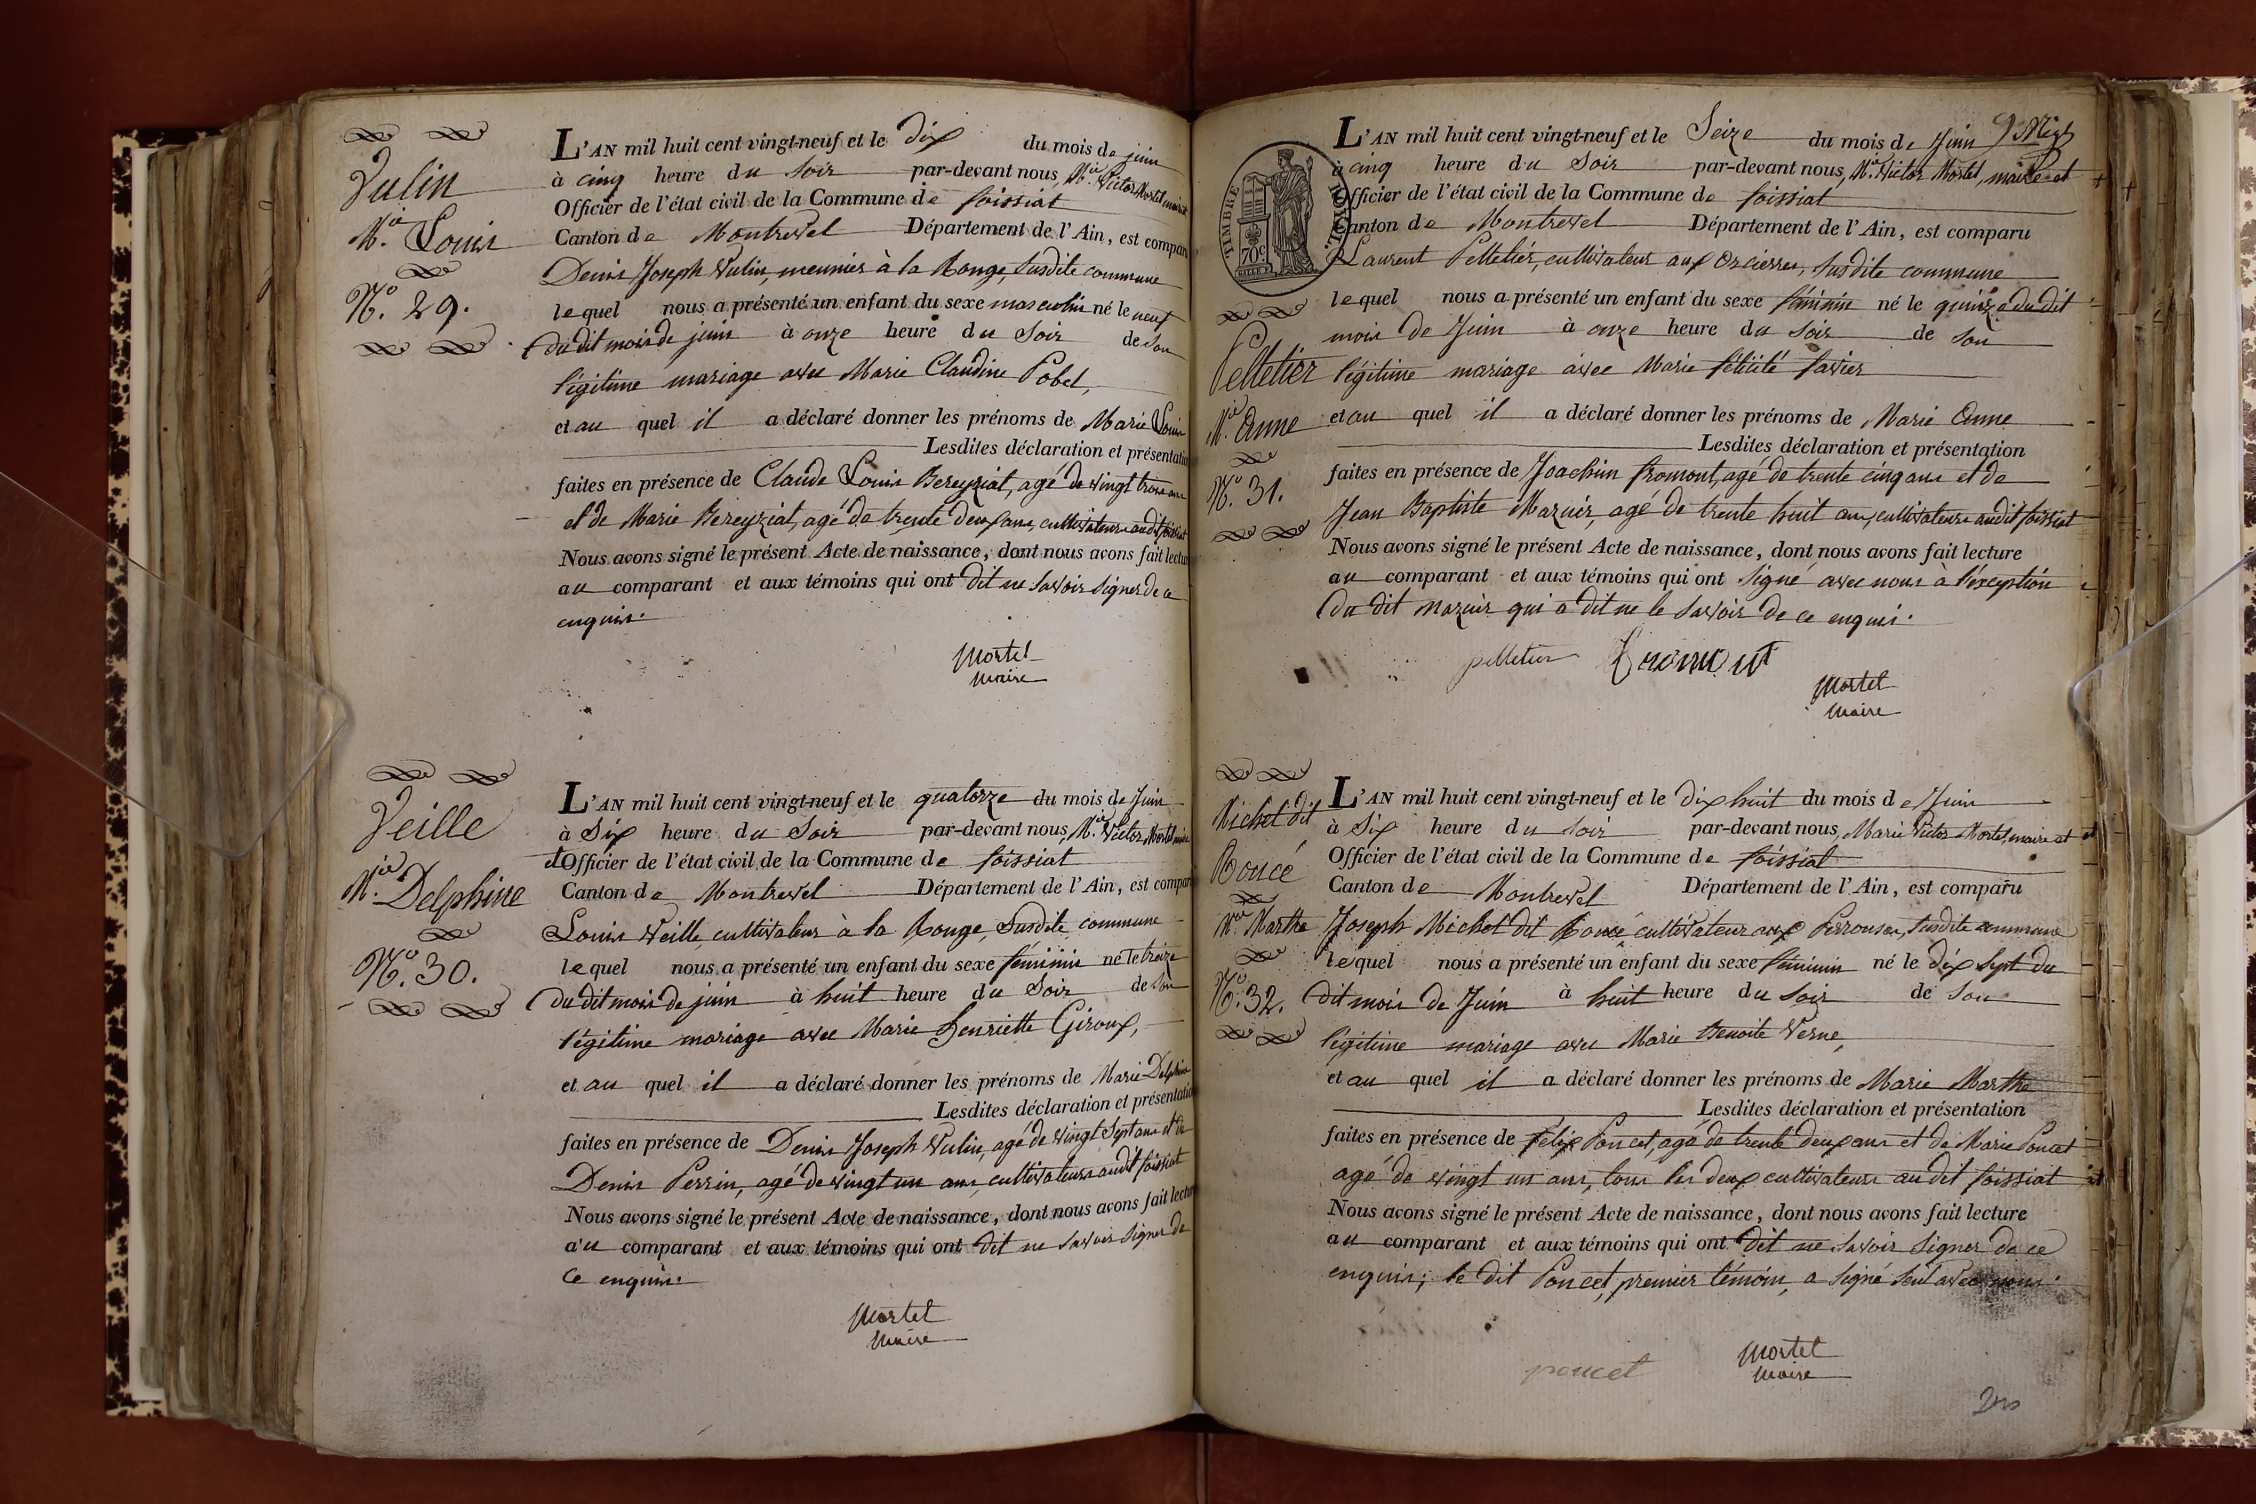 Vulin
M.ie Louis
N.o 29.
L'AN mil huit cent vingt-neuf et le dix du mois de juin
à cinq heure du soir par-devant nous, M.ie Victor Mortel maire et
Officier de l'état civil de la Commune de foissiat
Canton de Montrevel Département de l'Ain, est comparu
Denis Joseph Vulin, meunier à la Rouge, susdite commune
lequel nous a présenté un enfant du sexe masculin né le neuf
du dit mois de juin à onze heure du soir de son
légitime mariage avec Marie Claudine Pobel,
et au quel il a déclaré donner les prénoms de Marie Louis
Lesdites déclaration et présentation
faites en présence de Claude Louis Bereyziat, agé de vingt trois ans
et de Marie Bereyziat, agé de trente deux ans, cultivateurs audit foissiat
Nous avons signé le présent Acte de naissance, dont nous avons fait lecture
au comparant et aux témoins qui ont dit ne savoir signer de ce
enquis.
Mortel
Maire
Veille
M.ie Delphine
N.o 30.
L'AN mil huit cent vingt-neuf et le quatorze du mois de Juin
à Six heure du Soir par-devant nous, M.ie Victor Mortel maire
et Officier de l'état civil de la Commune de foissiat
Canton de Montrevel Département de l'Ain, est comparu
Louis Veille, cultivateur à la Rouge, Susdite commune
lequel nous a présenté un enfant du sexe féminin né le treize
du dit mois de juin à huit heure du Soir de son
légitime mariage avec Marie henriette Giroux,
et au quel il a déclaré donner les prénoms de Marie Delphine
Lesdites déclaration et présentation
faites en présence de Denis Joseph Vulin, agé de vingt Sept ans et de
Denis Perrin, agé de vingt un ans, cultivateurs audit foissiat
Nous avons signé le présent Acte de naissance, dont nous avons fait lecture
au comparant et aux témoins qui ont dit ne savoir signer de
ce enquis.
Mortel
Maire
TIMBRE ROYAL
70c
Pelletier
M.ie Anne
N.o 31.
L'AN mil huit cent vingt-neuf et le Seize du mois de Juin
à cinq heure du Soir par-devant nous, M.ie Victor Mortel, maire et
Officier de l'état civil de la Commune de foissiat
Canton de Montrevel Département de l'Ain, est comparu
Laurent Pelletier, cultivateur aux Orcières, susdite commune
lequel nous a présenté un enfant du sexe féminin né le quinze du dit
mois de Juin à onze heure du soir de son
légitime mariage avec Marie félicité favier
et au quel il a déclaré donner les prénoms de Marie Anne
Lesdites déclaration et présentation
faites en présence de Joachim fromont, agé de trente cinq ans et de
Jean Baptiste Mazuir, agé de trente huit ans, cultivateurs audit foissiat
Nous avons signé le présent Acte de naissance, dont nous avons fait lecture
au comparant et aux témoins qui ont signé avec nous à l'exception
du dit Mazuir qui a dit ne le savoir de ce enquis.
pelletier fromont
Mortel
Maire
Michel dit
Poncé
M.ie Marthe
N.o 32.
L'AN mil huit cent vingt-neuf et le dix huit du mois de Juin
à Six heure du soir par-devant nous, Marie Victor Mortel, maire et
Officier de l'état civil de la Commune de foissiat
Canton de Montrevel Département de l'Ain, est comparu
Joseph Michel dit Poncé cultivateur aux Perrouses, susdite commune
lequel nous a présenté un enfant du sexe féminin né le dix Sept du
dit mois de Juin à huit heure du soir de son
légitime mariage avec Marie Benoite Verne,
et au quel il a déclaré donner les prénoms de Marie Marthe
Lesdites déclaration et présentation
faites en présence de félix Poncet, agé de trente deux ans et de Marie Poncet
agé de vingt un ans, tous les deux cultivateurs au dit foissiat
Nous avons signé le présent Acte de naissance, dont nous avons fait lecture
au comparant et aux témoins qui ont dit ne savoir signer de ce
enquis; le dit Poncet, premier témoin, a signé seul avec nous.
poncet
Mortel
Maire